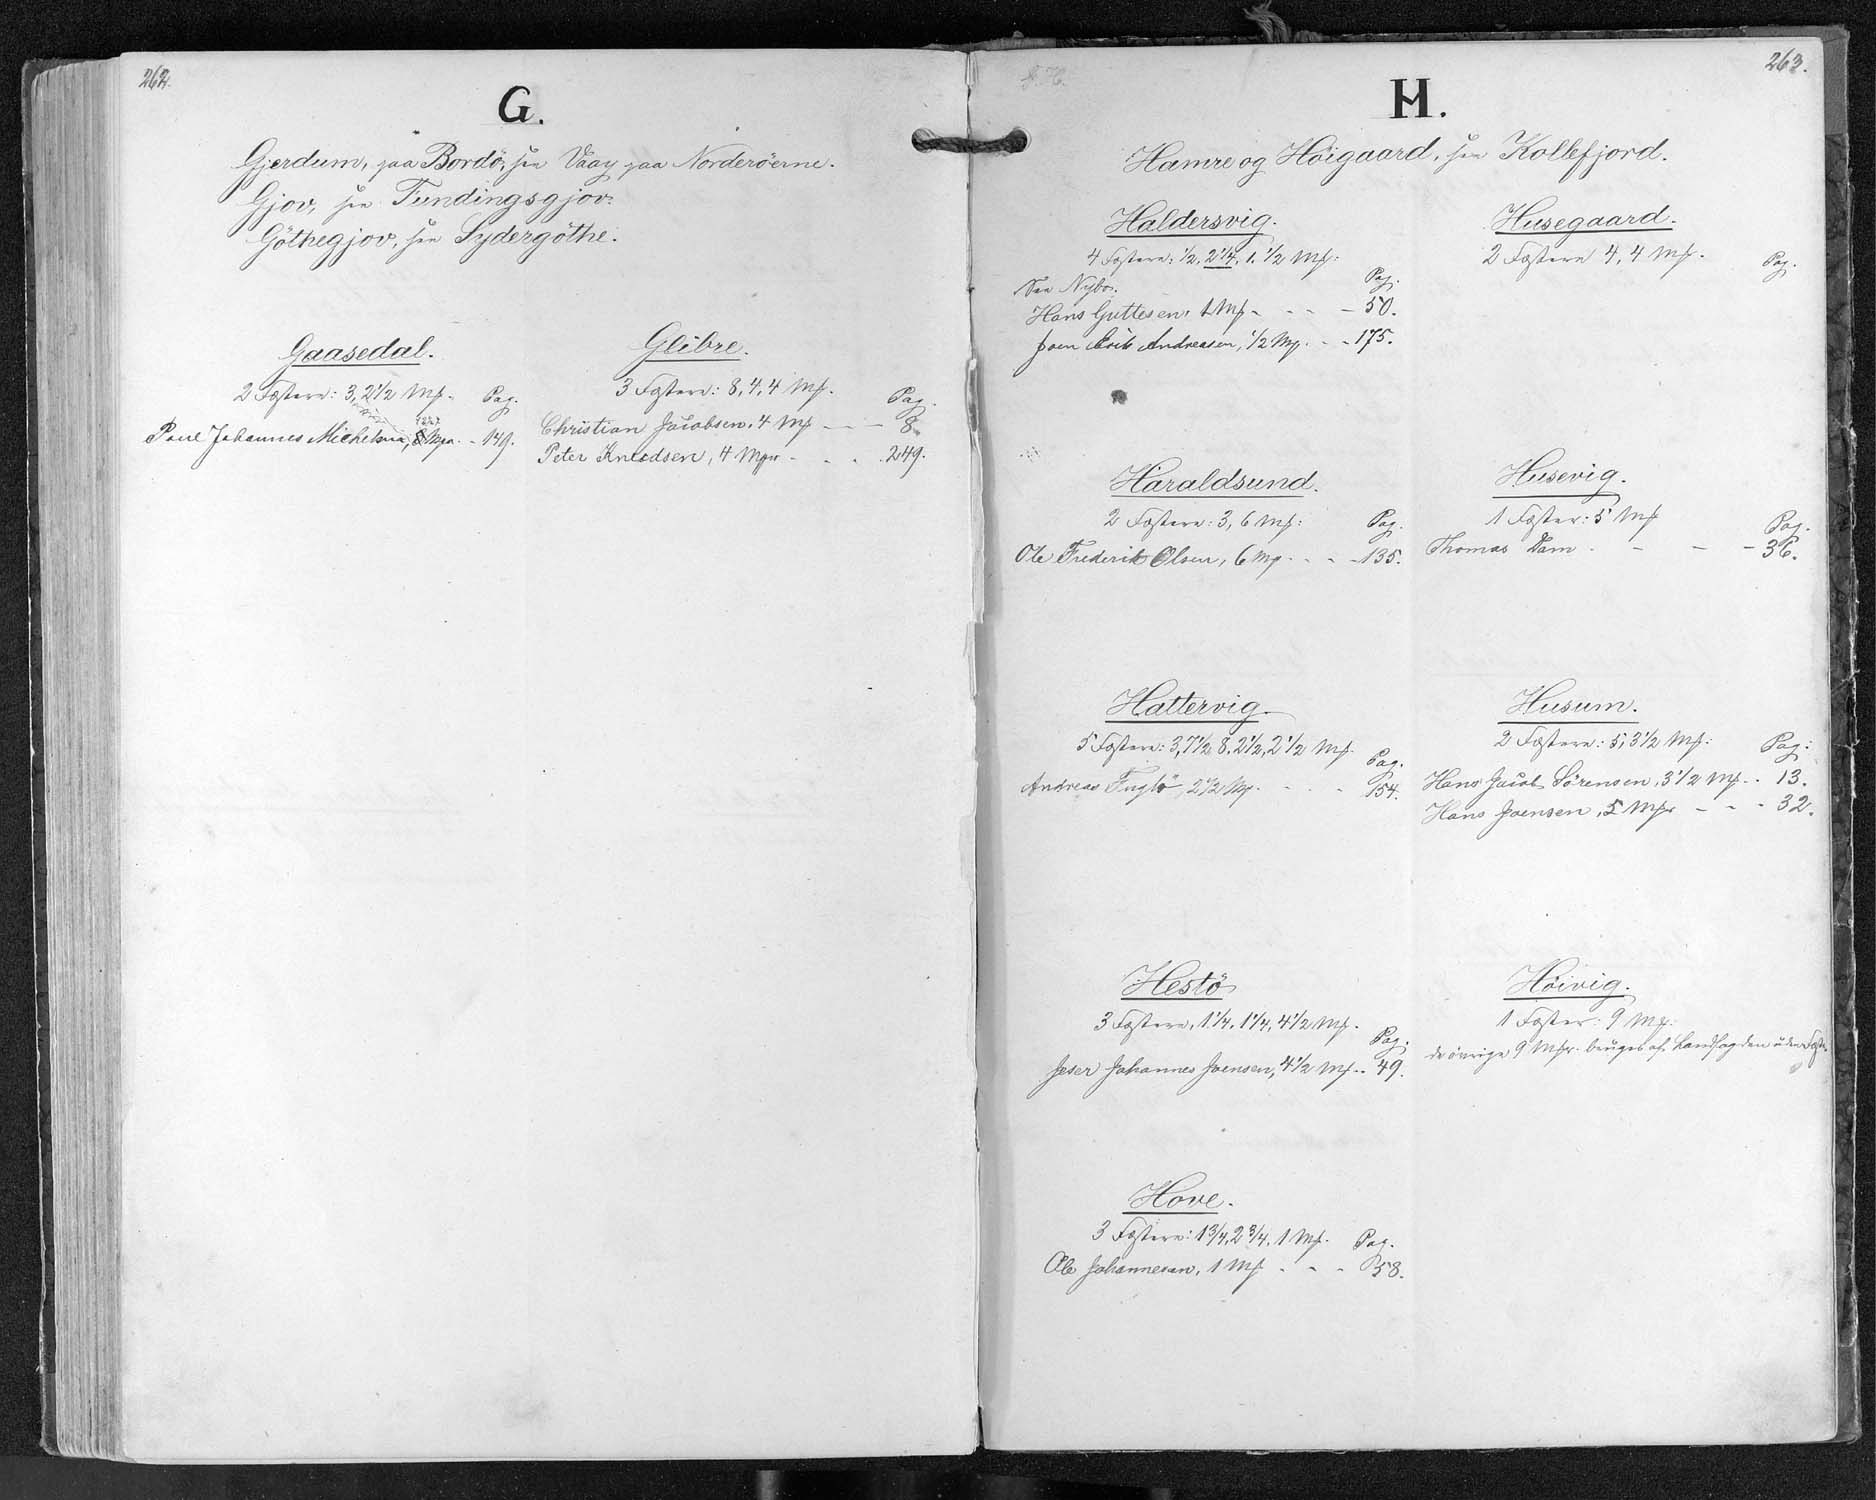 262.
G.
Gjerdum, paa Bordö, see Vaag paa Norderöerne.
Gjov, see Fundingsgjov.
Göthegjov, see Sydergöthe.
Gaasedal.
2 Fæstere: 3, 2 1/2 Mk. Pag.
Poul Johannes Michelsen, Mkr. - 149.
Glibre.
3 Fæstere: 8, 4, 4 Mk. Pag.
Christian Jacobsen, 4 Mk - - - 8.
Peter Knudsen, 4 Mkr - - . 249.
263.
H.
Hamre og Höigaard, see Kollefjord.
Haldersvig.
4 Fæstere: 1/2, 2 1/4, 1. 1/2 Mk:
See Nybo. Pag.
Hans Guttesen, 1 Mk - - - - 50.
Joen Erik Andreasen, 1/2 Mk. - - 175.
Haraldsund.
2 Fæstere: 3, 6 Mk: Pag.
Ole Frederik Olsen, 6 Mk - - - 135.
Hattervig.
5 Fæstere: 3, 7 1/2 8, 2 1/2, 2 1/2 Mk. Pag.
Andreas Fuglö, 2 1/2 Mk. - - - 154.
Hestö
3 Fæstere, 1 1/4, 1 1/4, 4 1/2 Mk. Pag.
Johannes Joensen, 4 1/2 Mk - - 49.
Hove.
3 Fæstere: 1 3/4, 2 3/4, 1 Mk. Pag.
Ole Johannesen, 1 Mk - - - 58.
Husegaard.
2 Fæstere 4, 4 Mk. Pag.
Husevig.
1 Fæster: 5 Mk Pag.
Thomas Dam - - - - 36.
Husum.
2 Fæstere: 5, 3 1/2 Mk: Pag:
Hans Jacob Sörensen, 3 1/2 Mk - - 13.
Hans Joensen, 5 Mkr - - - 32.
Höivig.
1 Fæster: 9 Mk.
de övrige 9 Mkr. bruges af Landfogden uden Fæste.